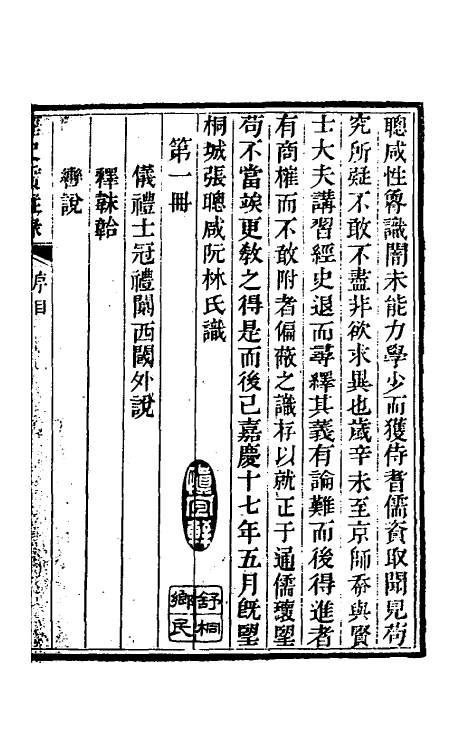 聰咸性魯識闇未能力學少而獲侍耆儒資取聞見苟
究所疑不敢不盡非欲求異也歲辛未至京師忝與賢
士大夫講習經史退而尋繹其義有論難而後得進者
有商榷而不敢附者偏蔽之識存以就正于通儒瓌望
苟不當竢更敎之得是而後已嘉慶十七年五月旣望
桐城張聰咸阮林氏識
第一冊
儀禮士冠禮闑西閾外說
釋韎韐
轡說
經史質疑錄
序目
舒桐鄉民